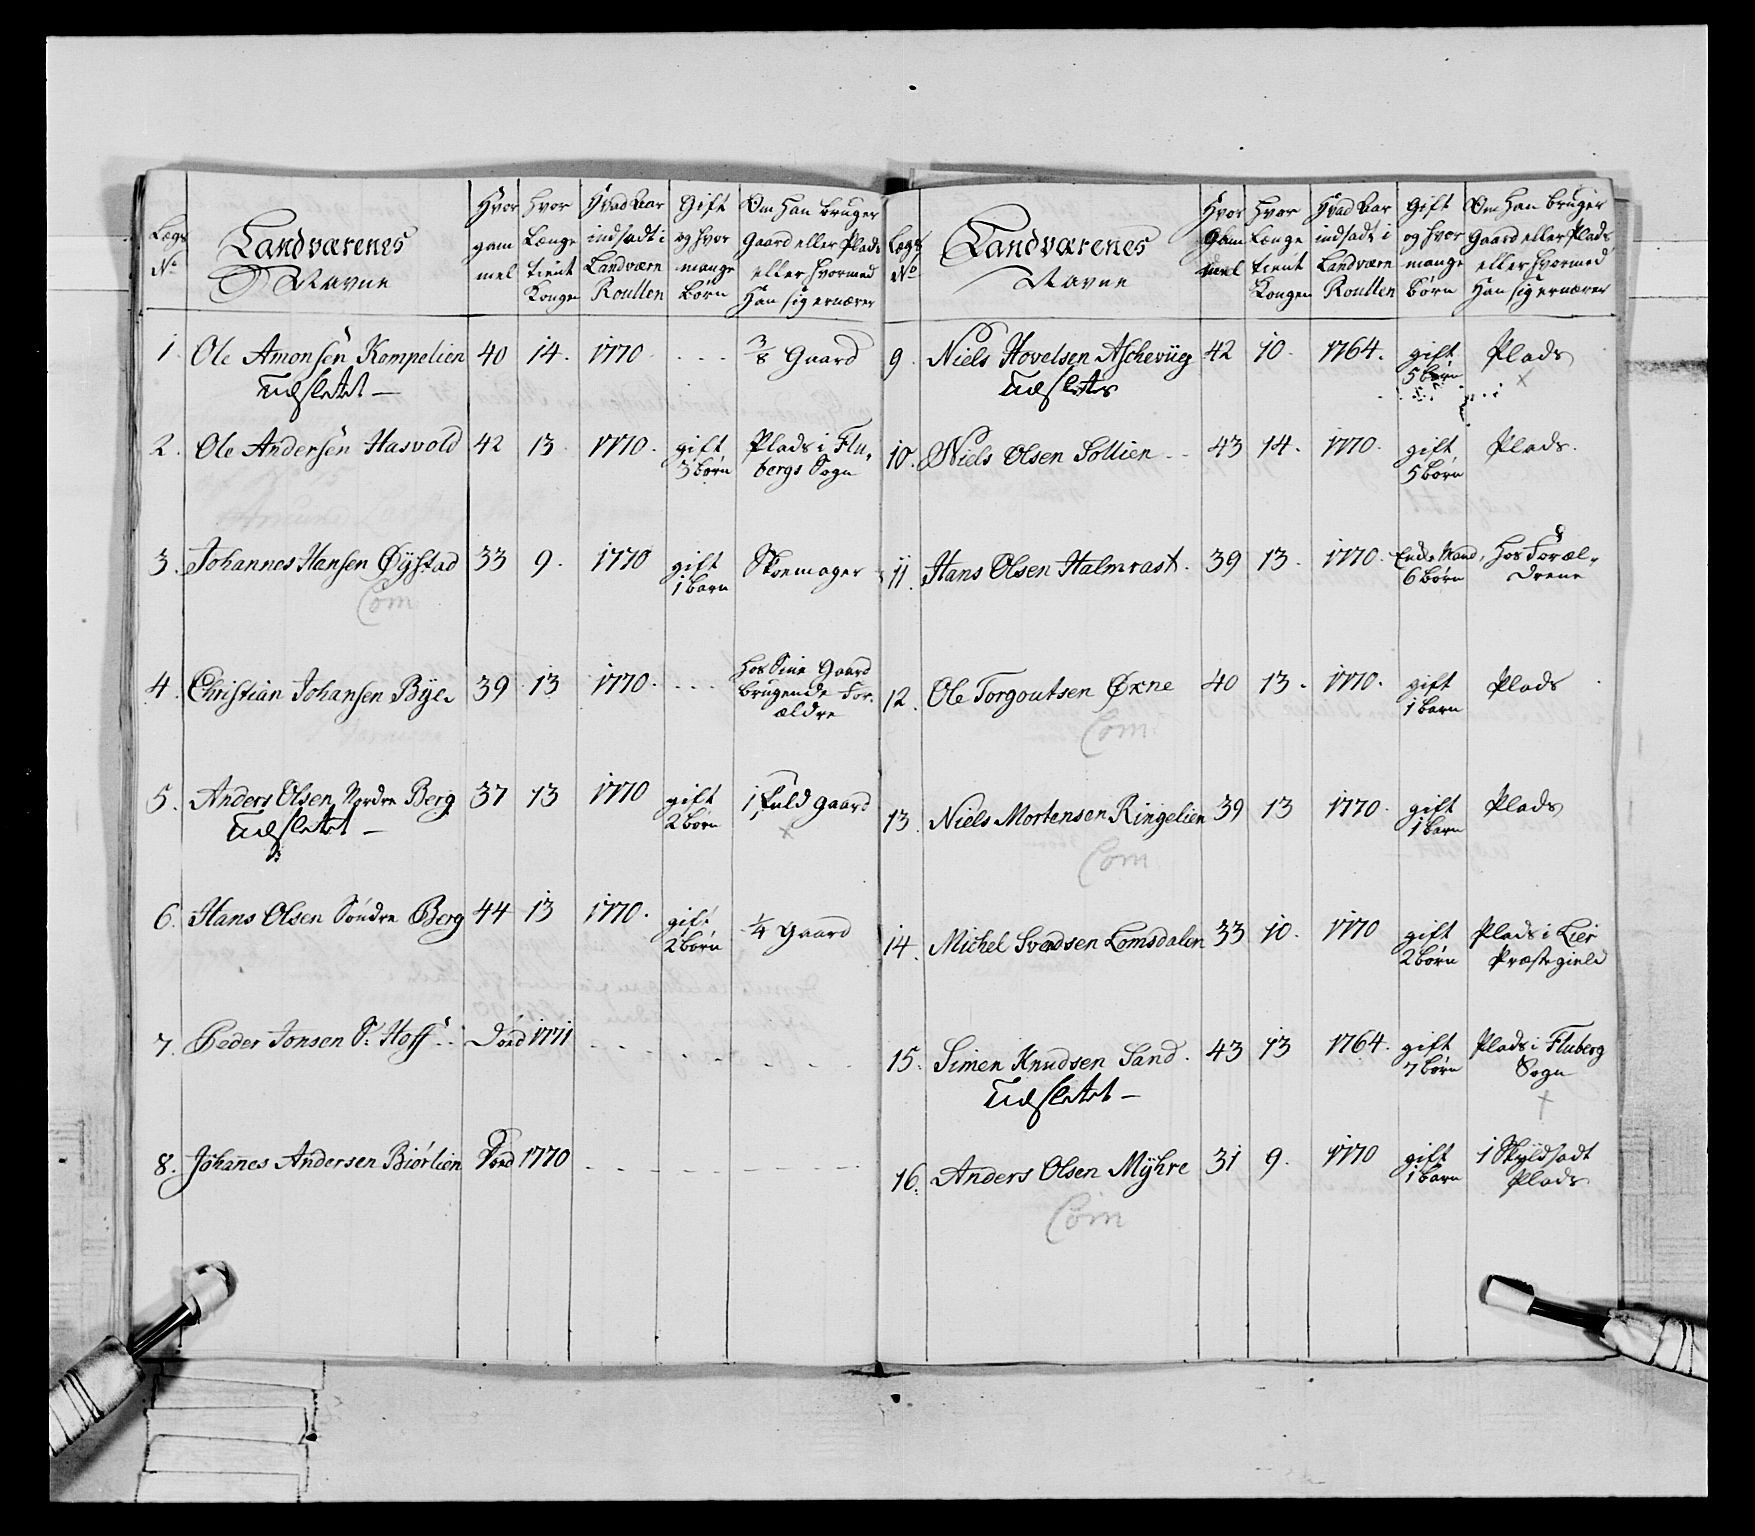 Lægs No
Landværenes Navne
Hvor gammel
Hvor Længe tient Kongen
Hvad Aar indsadt i Landværn Roullen
Gift og hvor mange Børn
Om Han bruger Gaard eller Plads eller hvormed Han sig ernærer
1. Ole Amonsen Kompelien 40 14. 1770. . . . 3/8 Gaard
Udslettet —
2. Ole Andersen Hasvold 42 13 1770. gift Plads i Flu-
3 børn bergs Sogn
3. Johannes Hansen Øystad 33 9. 1770 gift Skomager
1 barn
Com
4. Christian Johansen Bye. 39 13 1770. . . . hos Sine Gaard
brugende For-
ældre
5. Anders Olsen Nordre Berg 37 13 1770 gift 1 Fuld gaard
Udslettet — 2 børn x
6. Hans Olsen Søndre Berg 44 13 1770. gift 1/4 gaard
2 børn
7. Peder Jonsen S. Hoff . . Død 1771 . . . . . .
8. Johannes Andersen Biørlien Død 1770 . . . . . .
Lægs No
Landværenes Navne
Hvor Gammel
Hvor Længe tient Kongen
Hvad Aar indsadt i Landværn Roullen
Gift og hvor mange Børn
Om Han bruger Gaard eller Plads eller hvormed Han sig ernærer
9. Niels Hovelsen Aschevüg 42 10. 1764. gift Plads
Udslettes 5 børn x
10. Niels Olsen Sollien . . 43 14. 1770. gift Plads.
5 børn
11. Hans Olsen Halmrast. 39 13. 1770. Enke Mand, hos Foræl-
6 børn drene
12. Ole Torgoutsen Øxne 40 13. 1770. gift Plads
1 barn
Com
13. Niels Mortensen Ringelien 39 13 1770. gift Plads
1 barn
Com
14. Michel Svendsen Lomsdalen 33 10. 1770 gift Plads i Lier
2 børn Præstegield
15. Simen Knudsen Sand. 43 13 1764. gift Plads i Fluberg
7 børn Sogn
Udslettet — x
16. Anders Olsen Myhre 31 9. 1770 gift 1 Skyldsadt
1 barn Plads
Com